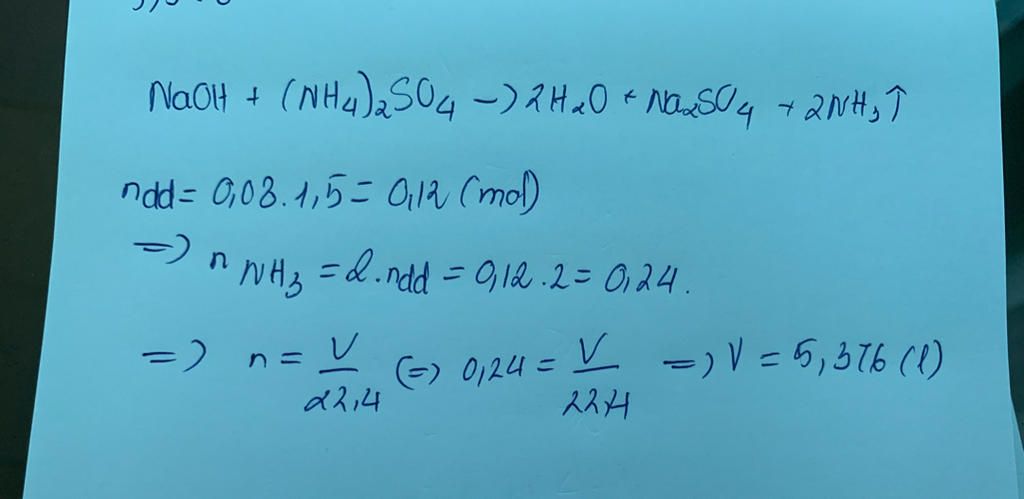 NaOH + (NH4)2SO4 -> 2H2O + Na2SO4 + 2NH3↑
ndd = 0,08 . 1,5 = 0,12 (mol)
=> n NH3 = 2.ndd = 0,12 . 2 = 0,24.
=> n = V/22,4 <=> 0,24 = V/22,4 => V = 5,376 (l)